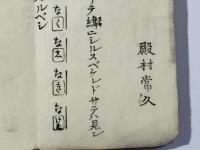 殿村常久
テ繼ニシルスベケレドサテハ見ン
なく なゑ なき な
ルベシ